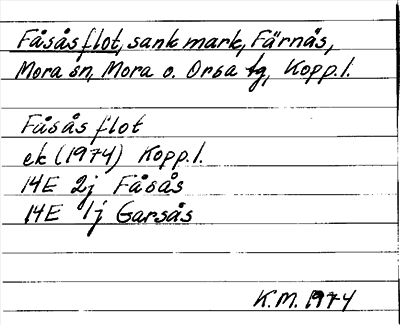 Fåsås flot, sank mark, Färnäs,
Mora sn, Mora o. Orsa tg, Kopp.l.
Fåsås flot
ek (1974) Kopp.l.
14E 2j Fåsås
14E 1j Garsås
K.M. 1974